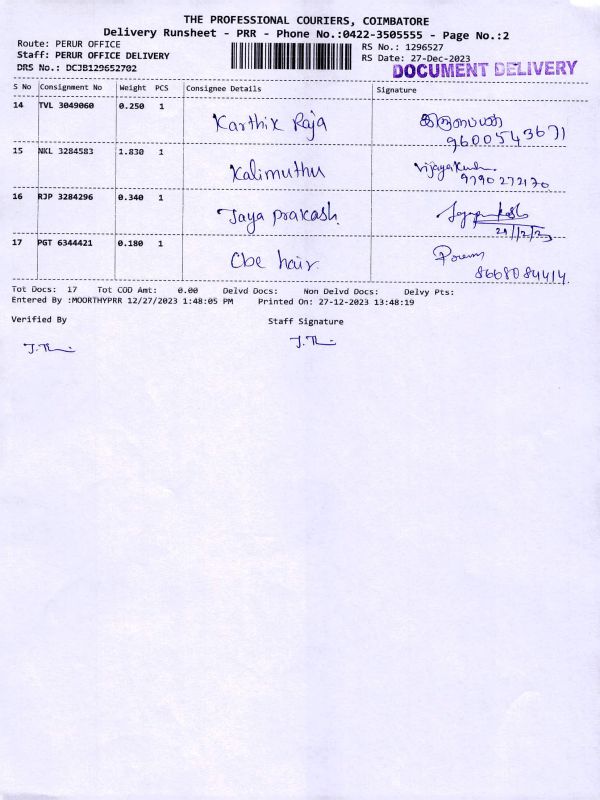 THE PROFESSIONAL COURIERS, COIMBATORE
Delivery Runsheet - PRR - Phone No.:0422-3505555 - Page No.:2
Route: PERUR OFFICE
Staff: PERUR OFFICE DELIVERY
DRS No.: DCJB129652702
RS No.: 1296527
RS Date: 27-Dec-2023
DOCUMENT DELIVERY
S No Consignment No Weight PCS Consignee Details Signature
14 TVL 3049060 0.250 1 Karthik Raja
9600543671
15 NKL 3284583 1.830 1 Kalimuthu
9790272170
16 RJP 3284296 0.340 1 Jaya prakash
17 PGT 6344421 0.180 1 Cbe hair
8668084414
Tot Docs: 17 Tot COD Amt: 0.00 Delvd Docs: Non Delvd Docs: Delvy Pts:
Entered By :MOORTHYPRR 12/27/2023 1:48:05 PM Printed On: 27-12-2023 13:48:19
Verified By Staff Signature